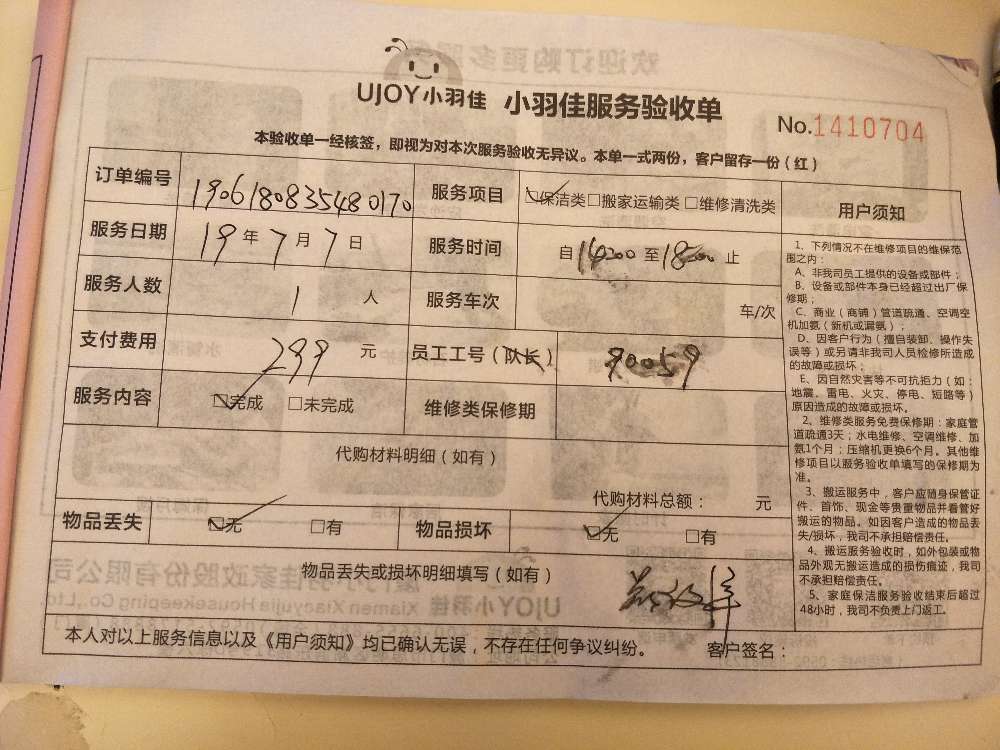 UJOY小羽佳 小羽佳服务验收单
No.1410704
本验收单一经核签，即视为对本次服务验收无异议。本单一式两份，客户留存一份（红）
订单编号 1906180835480170 服务项目 保洁类□搬家运输类□维修清洗类
服务日期 19年7月7日 服务时间 自1400至1800止
服务人数 1人 服务车次 车/次
支付费用 299元 员工工号（队长） 90059
服务内容 完成 □未完成 维修类保修期
代购材料明细（如有）
代购材料总额： 元
物品丢失 无 □有 物品损坏 无 □有
物品丢失或损坏明细填写（如有）
本人对以上服务信息以及《用户须知》均已确认无误，不存在任何争议纠纷。 客户签名：
用户须知
1、下列情况不在维修项目的维保范
围之内：
A、非我司员工提供的设备或部件；
B、设备或部件本身已经超过出厂保
修期；
C、商业（商铺）管道疏通、空调空
机加氨（新机或漏氨）；
D、因客户行为（擅自装卸、操作失
误等）或另请非我司人员检修所造成
的故障或损坏；
E、因自然灾害等不可抗拒力（如：
地震、雷电、火灾、停电、短路等）
原因造成的故障或损坏。
2、维修类服务免费保修期：家庭管
道疏通3天；水电维修、空调维修、加
氨1个月；压缩机更换6个月。其他维
修项目以服务验收单填写的保修期为
准。
3、搬运服务中，客户应随身保管证
件、首饰、现金等贵重物品并看管好
搬运的物品。如因客户造成的物品丢
失/损坏，我司不承担赔偿责任。
4、搬运服务验收时，如外包装或物
品外观无搬运造成的损伤痕迹，我司
不承担赔偿责任。
5、家庭保洁服务验收结束后超过
48小时，我司不负责上门返工。